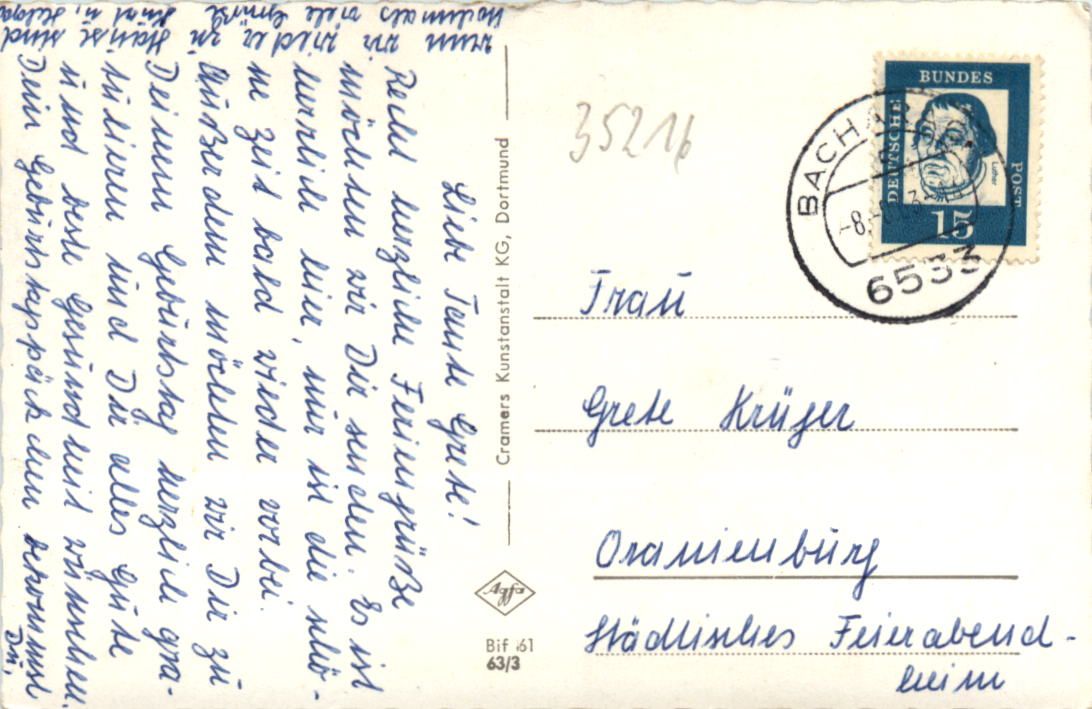 Liebe Tante Grete!
Recht herzliche Feriengrüße
möchten wir Dir senden. Es ist
herrlich hier, nur ist die schö-
ne Zeit bald wieder vorbei.
Außerdem möchten wir Dir zu
Deinem Geburtstag herzlich gra-
tulieren und Dir alles Gute
und beste Gesundheit wünschen.
Dein Geburtstagspäckchen bekommst
Du,
wenn wir wieder zu Hause sind
Nochmals viele Grüße
Cramers Kunstanstalt KG, Dortmund
Agfa
Bif 61
63/3
35216
BUNDES
DEUTSCHE
POST
Luther
15
BACHA
6533
Frau
Grete Krüger
Oranienburg
Städtisches Feierabend-
heim